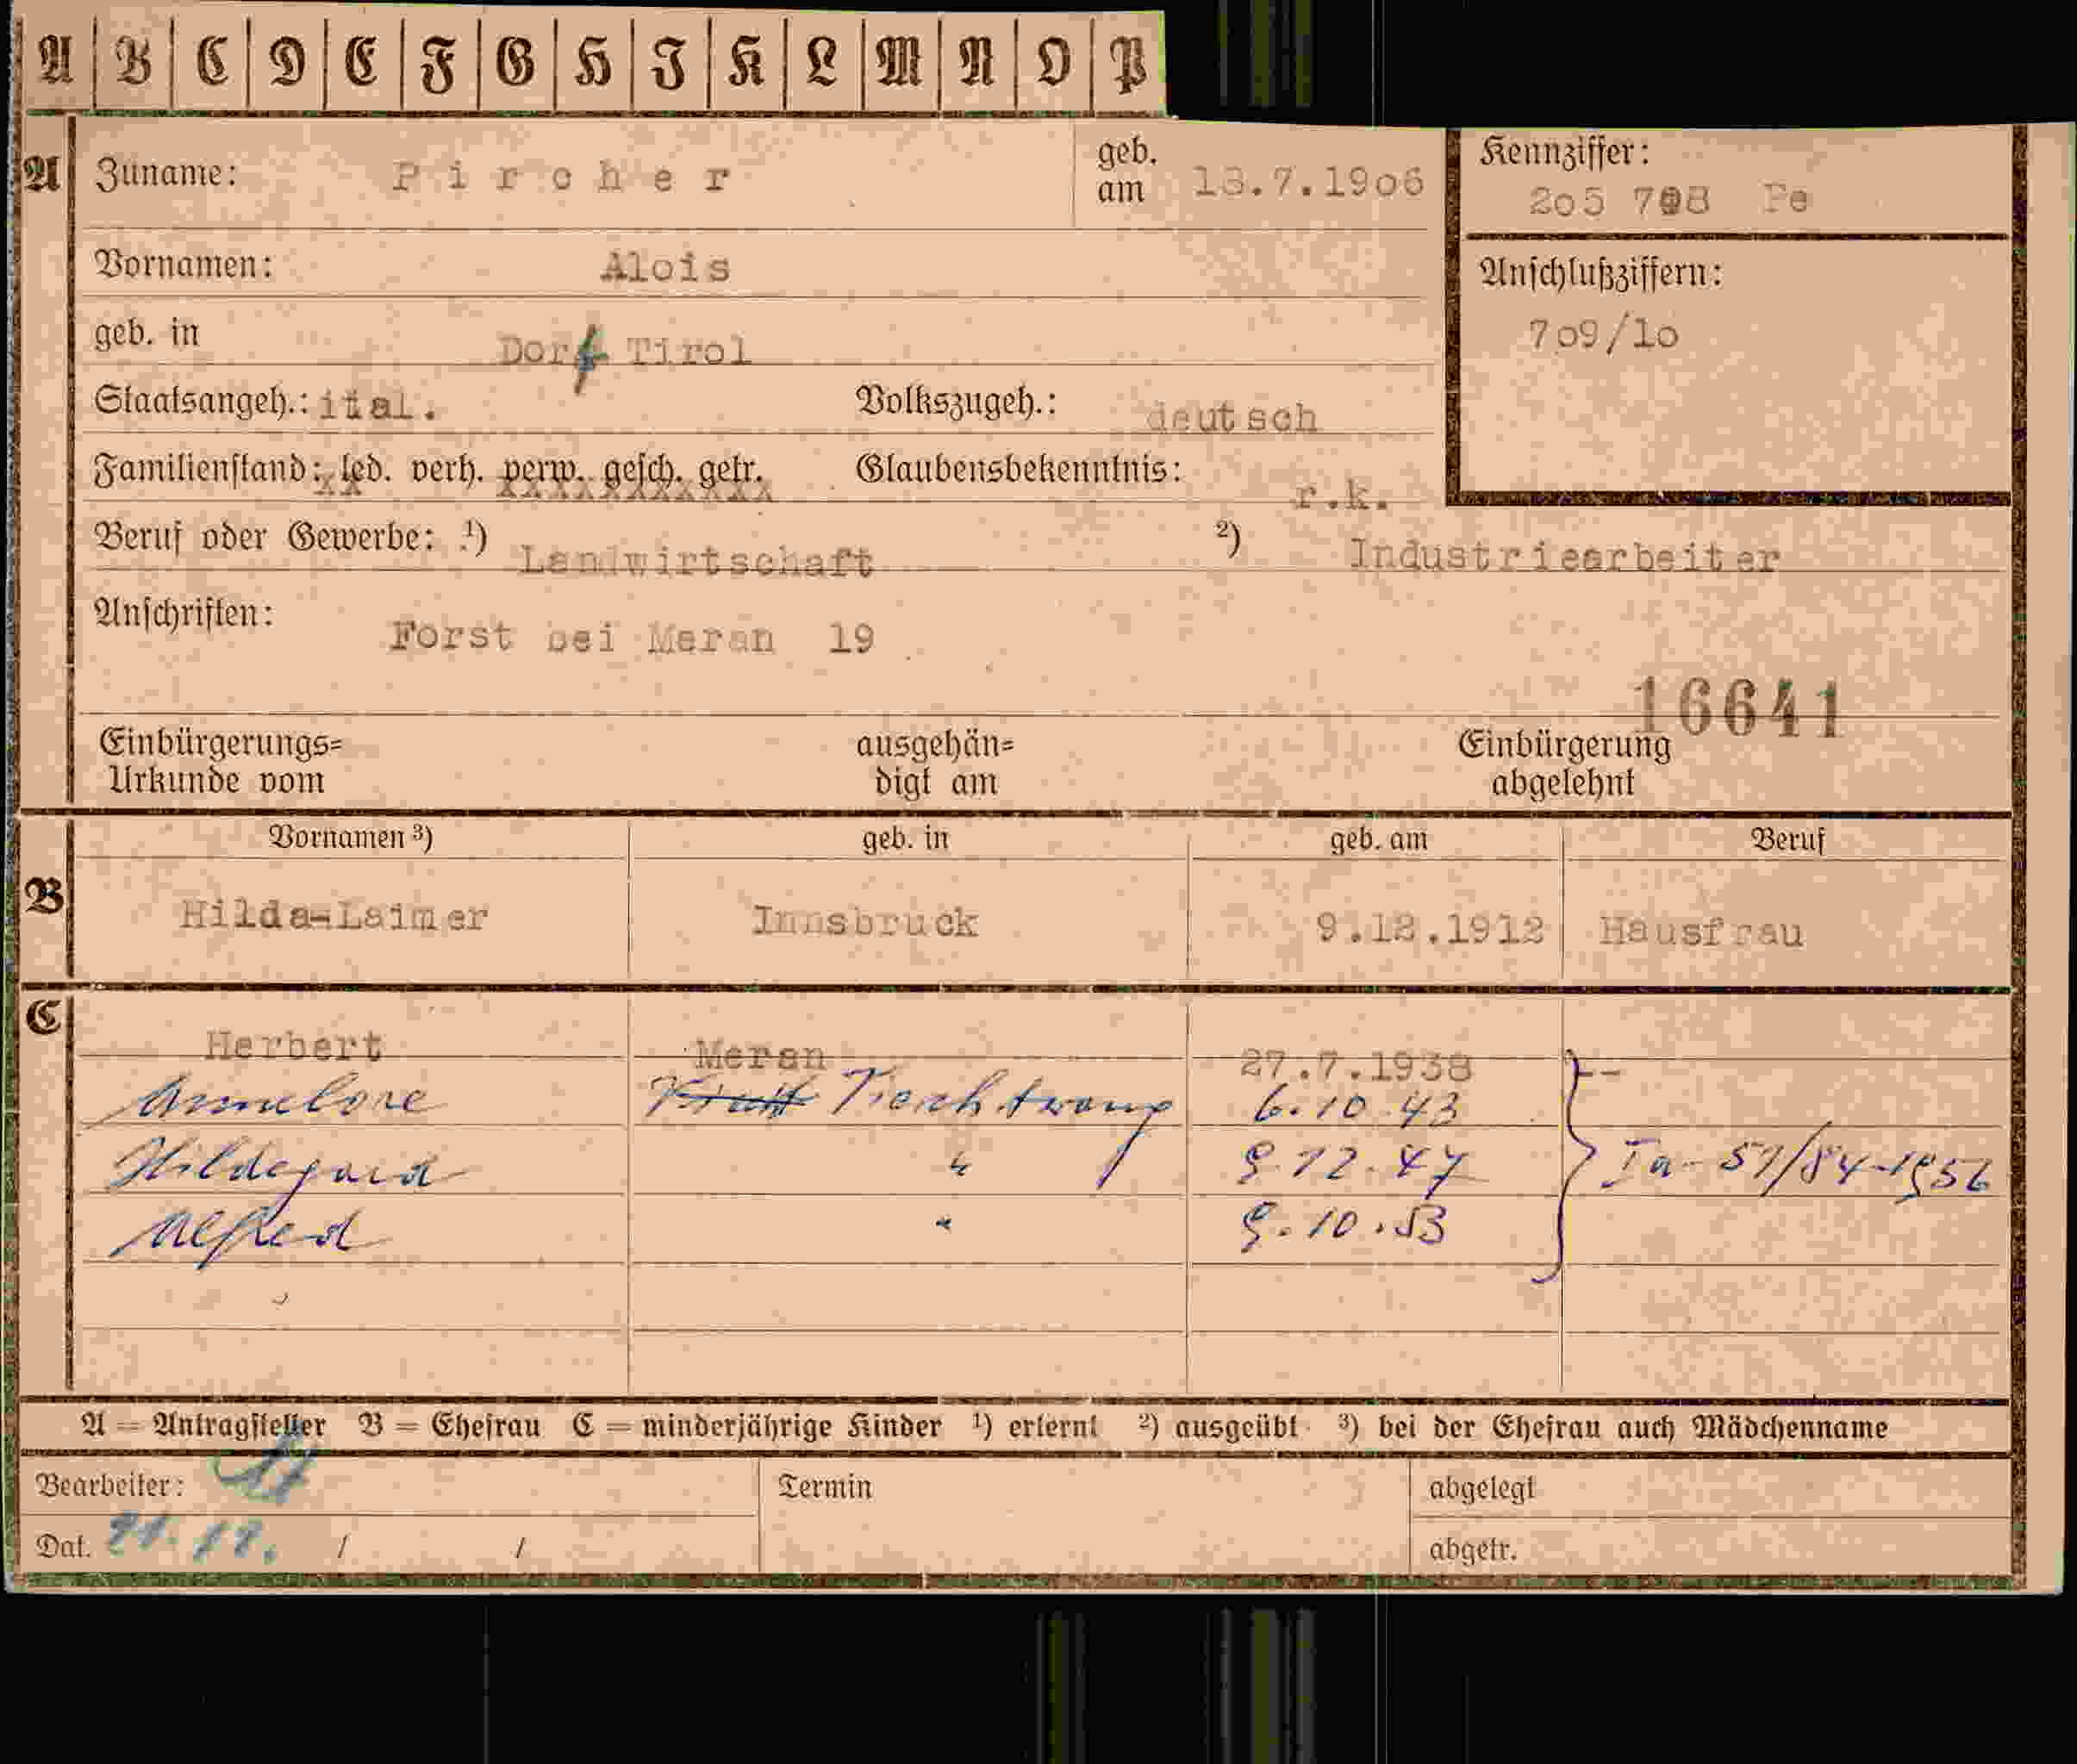 A B C D E F G H I K L M N O P
A Zuname: Pircher geb. am 13.7.1906 Kennziffer:
205 708 Pe
Vornamen: Alois Anschlußziffern:
709/10
geb. in Dorf Tirol
Staatsangeh.: ital. Volkszugeh.: deutsch
Familienstand: led. verh. verw. gesch. getr. Glaubensbekenntnis: r.k.
Beruf oder Gewerbe: 1) Landwirtschaft 2) Industriearbeiter
Anschriften: Forst bei Meran 19
16641
Einbürgerungs= ausgehän= Einbürgerung
Urkunde vom digt am abgelehnt
Vornamen 3) geb. in geb. am Beruf
B Hilda-Laimer Innsbruck 9.12.1912 Hausfrau
C
Herbert Meran 27.7.1938 --
Annelore 6.10.43
Hildegard " 9.12.47 Ia-51/84-1956
Alfred " 9.10.53
A = Antragsteller B = Ehefrau C = minderjährige Kinder 1) erlernt 2) ausgeübt 3) bei der Ehefrau auch Mädchenname
Bearbeiter: Termin abgelegt
Dat. 21.12. / / abgetr.